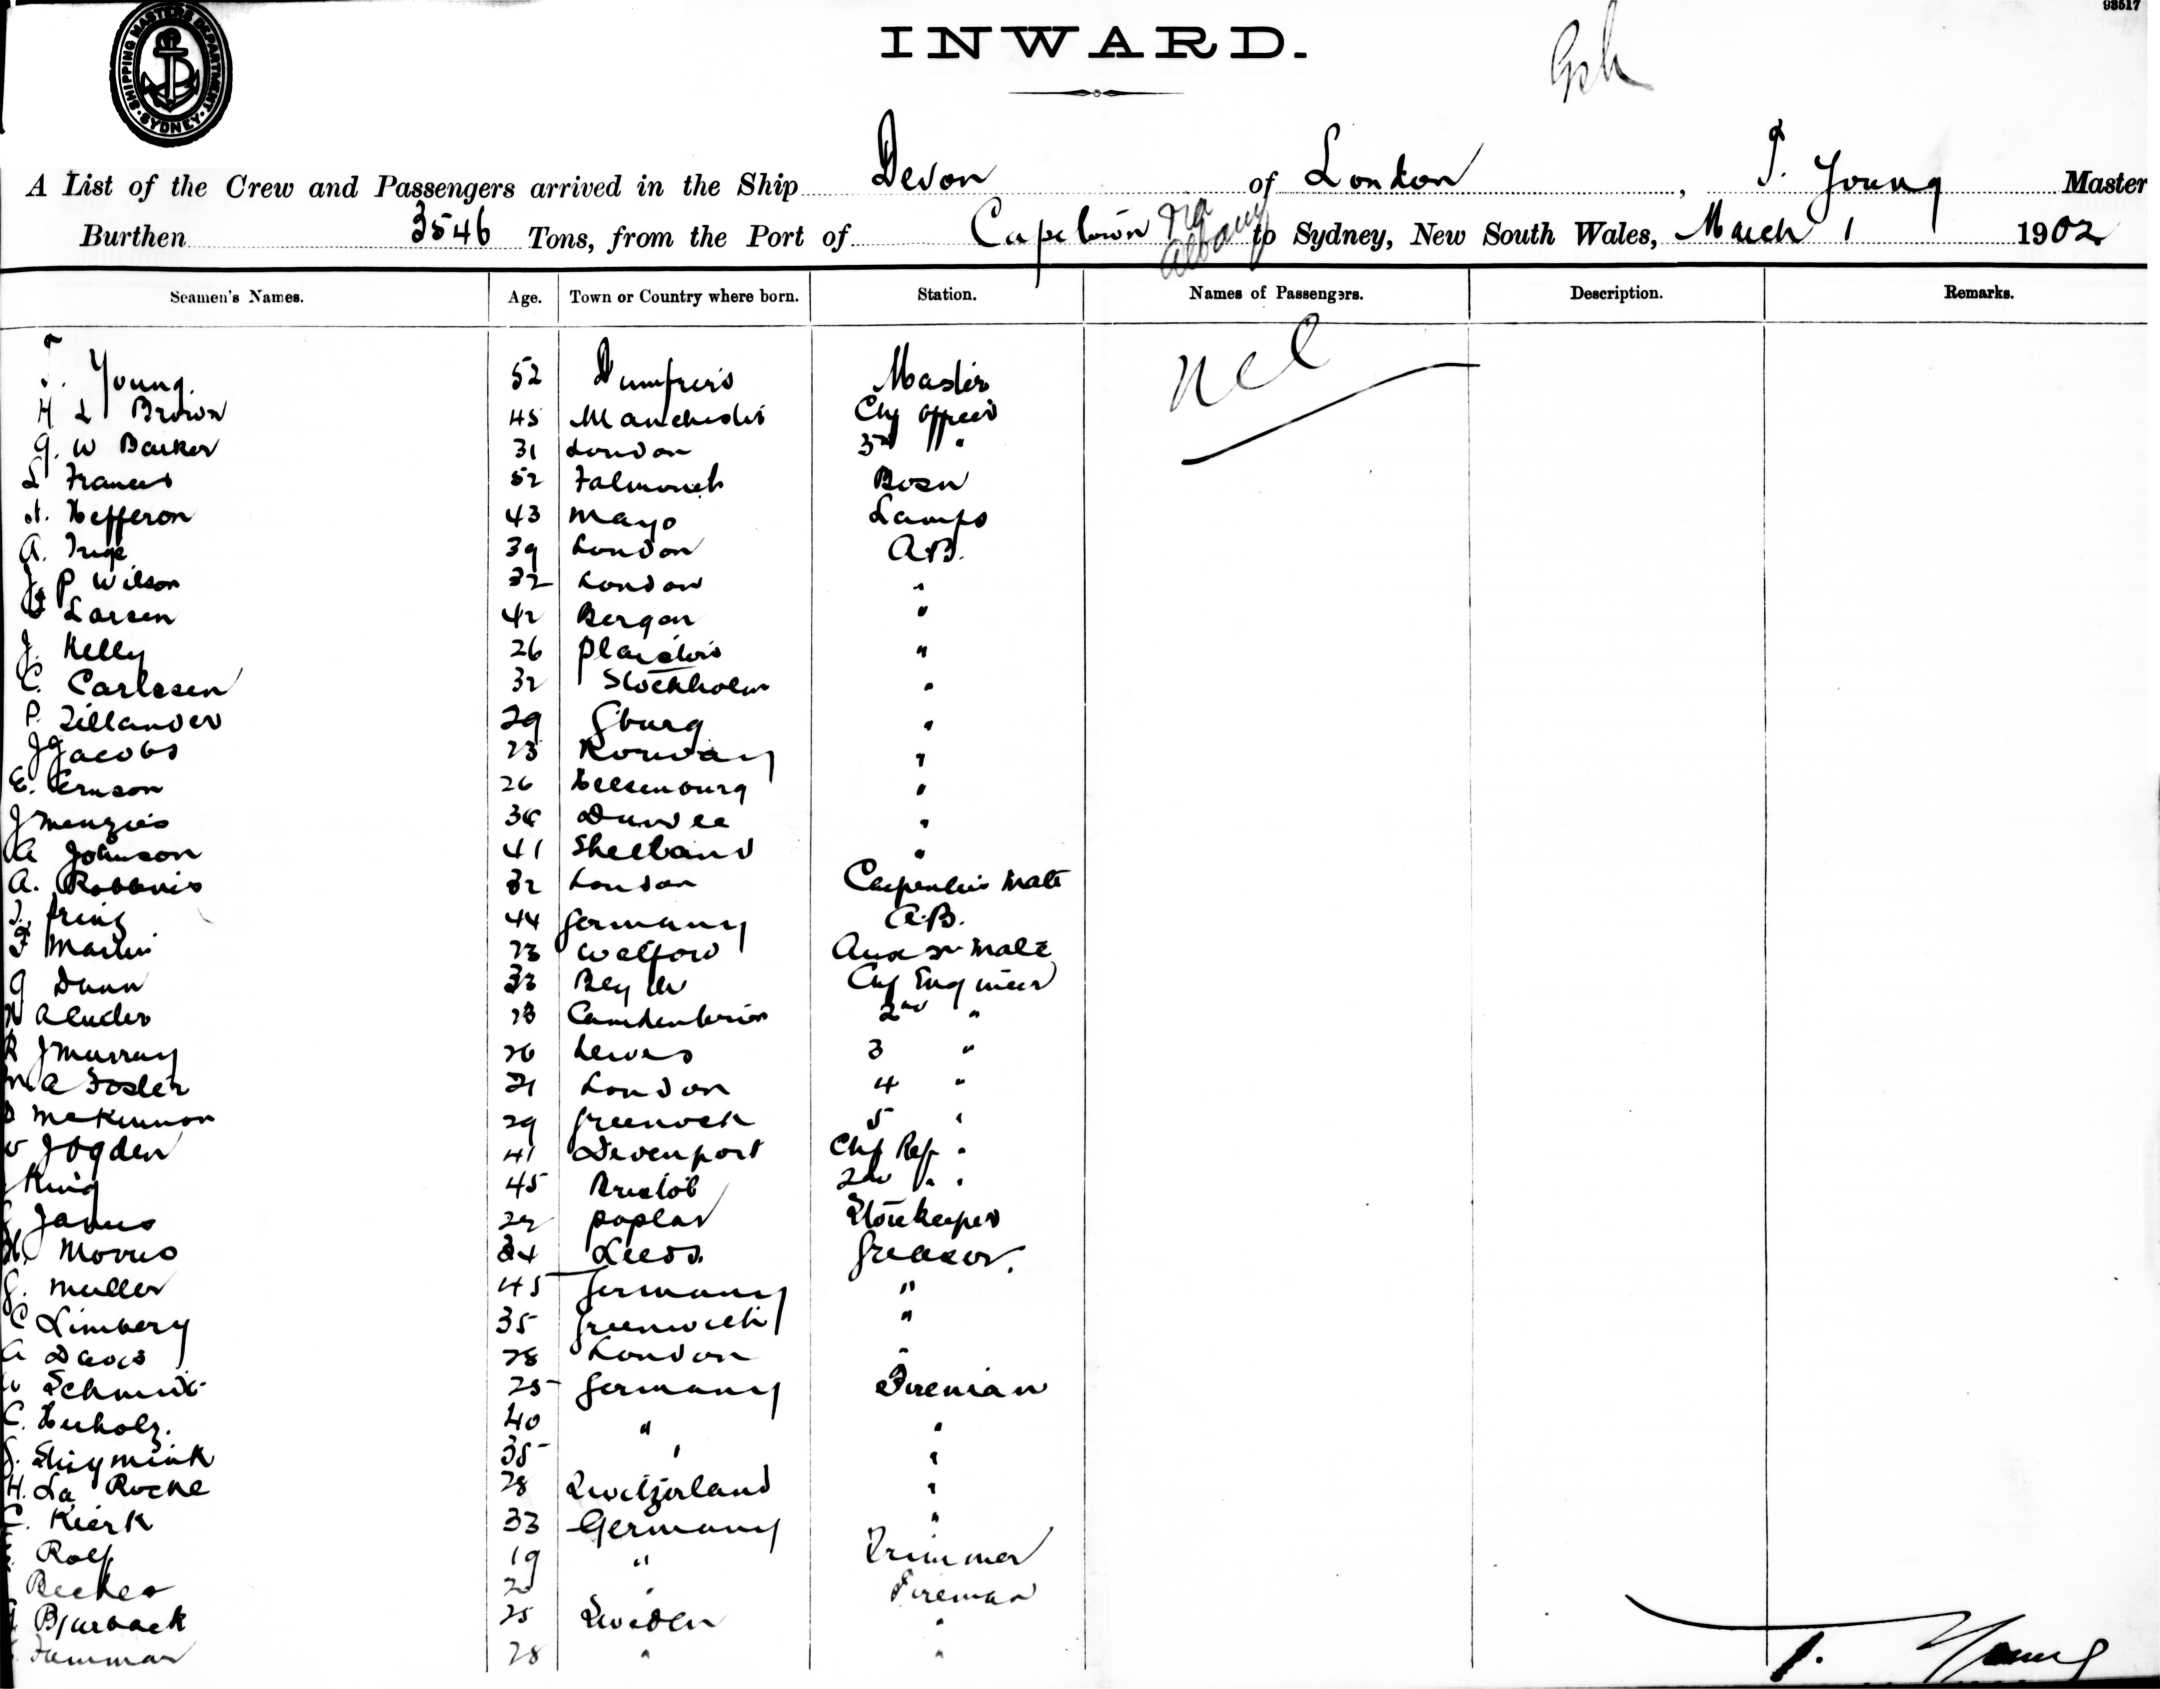 98517
SHIPPING MASTERS DEPARTMENT
SYDNEY
INWARD.
A List of the Crew and Passengers arrived in the Ship Devon of London, T. Young Master
Burthen 3546 Tons, from the Port of Capetown via Albany to Sydney, New South Wales, March 1 1902
Seamen's Names. Age. Town or Country where born. Station. Names of Passengers. Description. Remarks.
T. Young. 52 Dumfries Master Nil
H L Brown 45 Manchester Chf Officer
G. W Barker 31 London 3rd "
L Frances 52 Falmouth Bosn
Hefferon 43 Mayo Lamps
A. 39 London A.B.
J. P Wilson 32 London "
Larsen 42 Bergen "
J. Kelly 26 Plaistow "
C. Carlssen 32 Stockholm "
P. Zillander 29 Gburg "
J Jacobs 23 Norway "
E. Ernson 26 "
J Menzies 36 Dundee "
A Johnson 41 Shetland "
A. Robbins 32 London Carpenters Mate
44 Germany A.B.
F Martin 23 Welford Mate
G Dunn 33 Chf Engineer
2nd "
R J Murray 26 Lewes 3 "
A Foster 21 London 4 "
McKinnon 29 Greenock 5 "
J Ogden 41 Devenport Chf Ref "
King 45 Bristol 2nd " "
James 22 Poplar Storekeeper
H. Morris 34 Leeds Greaser.
G. Muller 45 Germany "
C Limbery 35 Greenwich "
A Davis 28 London "
Schmidt 25 Germany Fireman
C. 40 " "
35 " "
H. La Roche 28 Switzerland "
C. Kierk 33 Germany "
Rolf 19 " Trimmer
Becker " Fireman
Bjurback 25 Sweden "
28 " "
T. Young